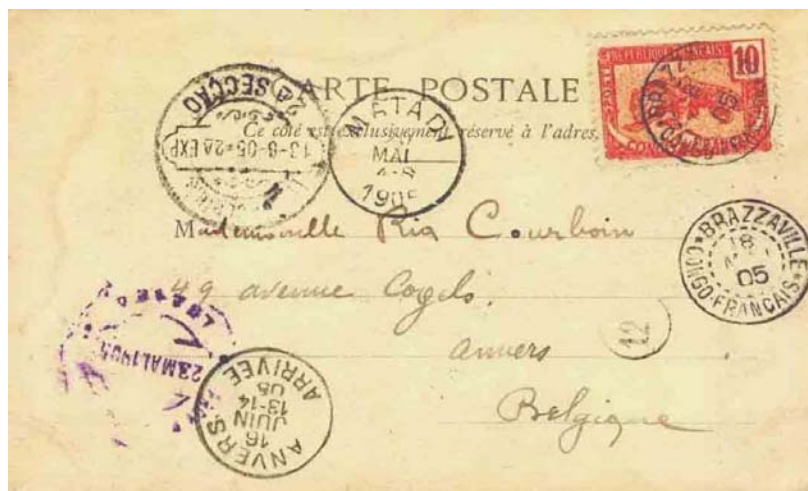 CARTE POSTALE
Ce côté est exclusivement réservé à l'adres
REPUBLIQUE FRANÇAISE
10
POSTES
CONGO
2A SECÇÃO
13-6-05 = 2A EXP
MATADI
MAI
1905
BRAZZAVILLE
18
05
CONGO-FRANÇAIS
Mademoiselle Ria Courboin
49 avenue Cogels.
12
Anvers
Belgique
23 MAI 1905
ANVERS
16
JUIN
13-14
05
ARRIVÉE